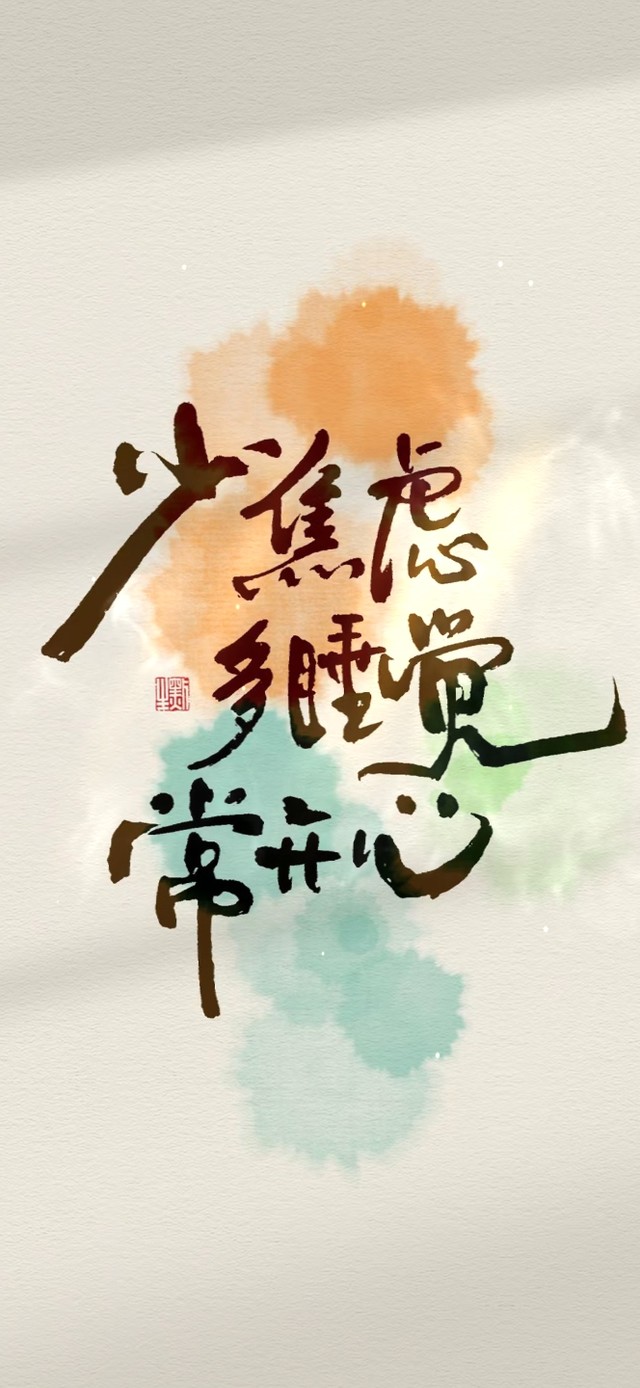 少焦虑
多睡觉
常开心